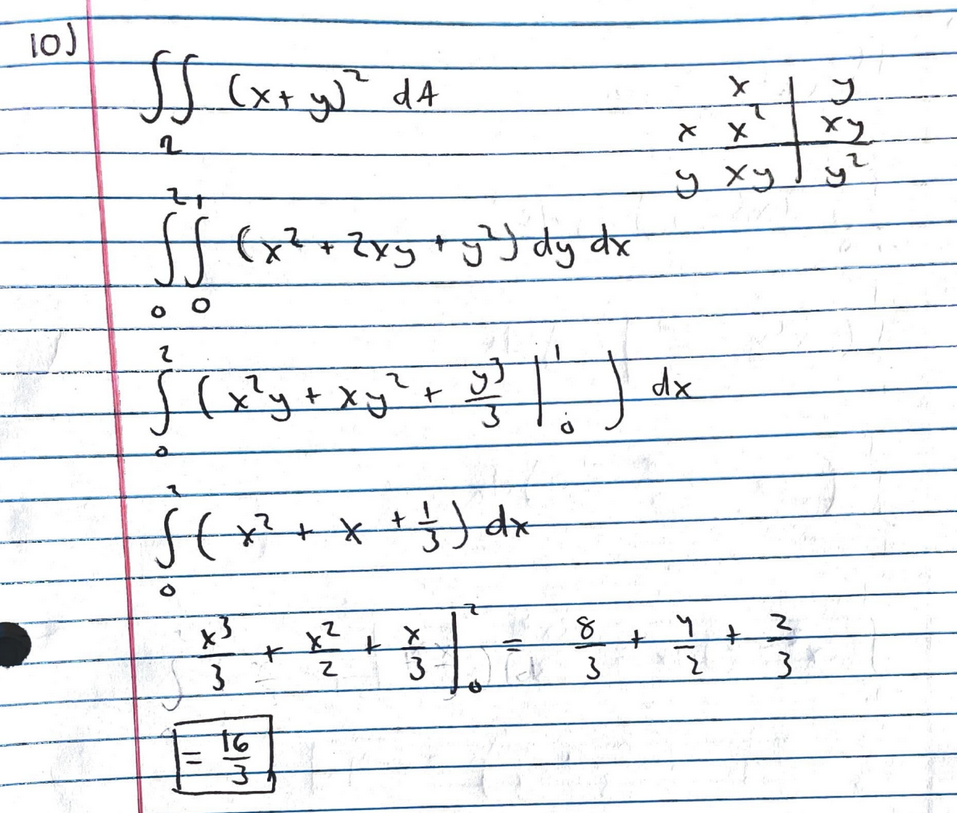 10)
∬ (x + y)² dA
2
x | y
x x² | xy
y xy | y²
∫₀² ∫₀¹ (x² + 2xy + y²) dy dx
∫₀² (x²y + xy² + y³/3 |₀¹ ) dx
∫₀² ( x² + x + 1/3 ) dx
x³/3 + x²/2 + x/3 |₀² = 8/3 + 4/2 + 2/3
= 16/3